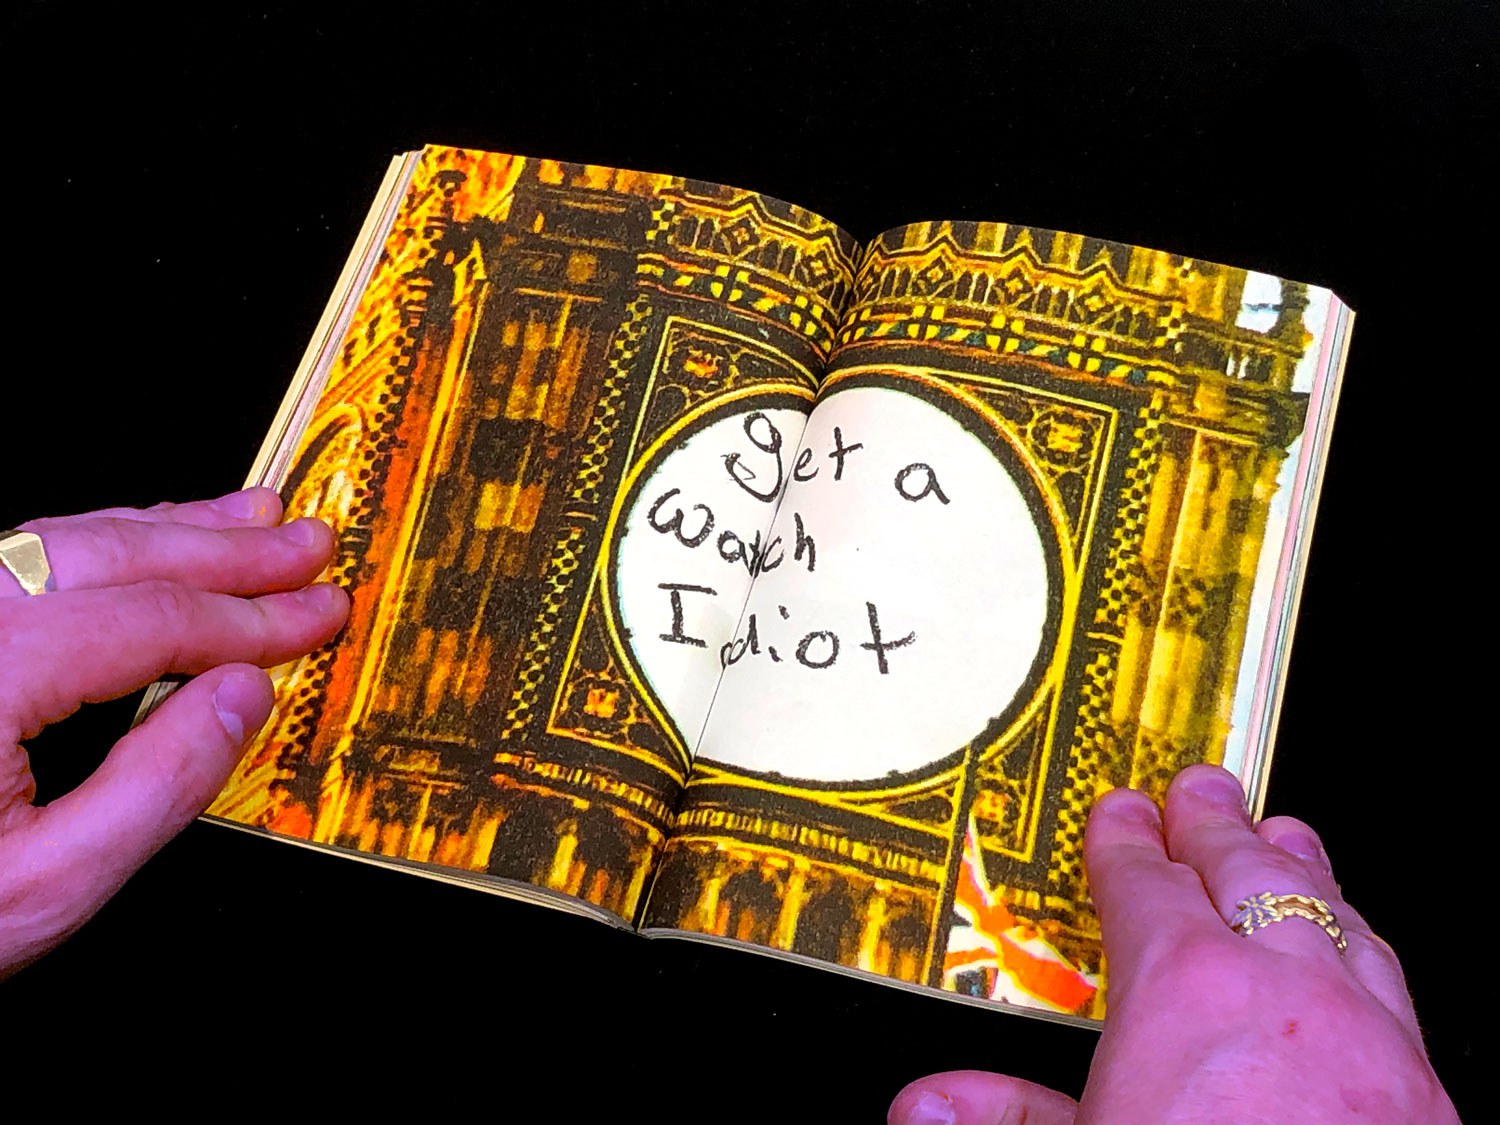 get a
watch
Idiot